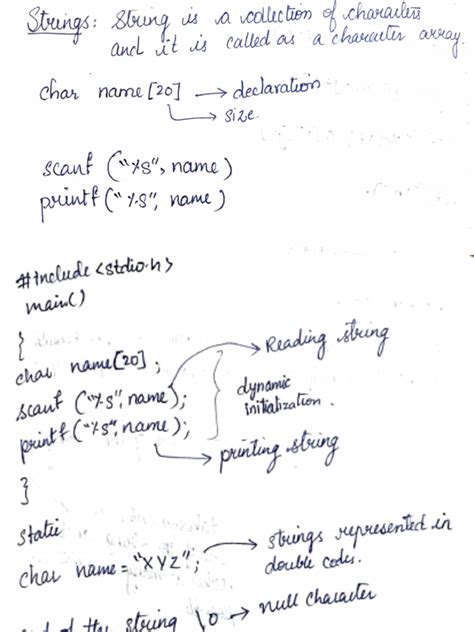 Strings: String is a collection of characters
and it is called as a character array.
char name [20] → declaration
→ size.
scanf ("%s", name)
printf ("%s", name)
#include <stdio.h>
main()
{
char name[20];
scanf ("%s", name); → Reading string
printf ("%s", name); → printing string
} dynamic
initialization.
}
static
char name = "XYZ"; → strings represented in
double codes.
end of the string \0 → null character